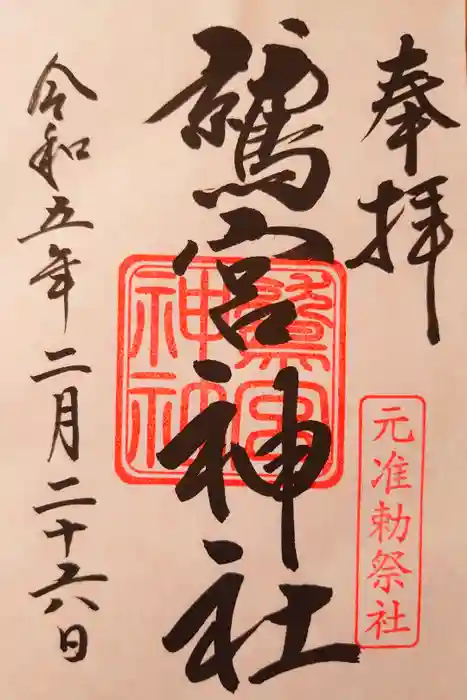 奉拝
元准勅祭社
鷲宮神社
鷲宮
神社
令和五年二月二十六日